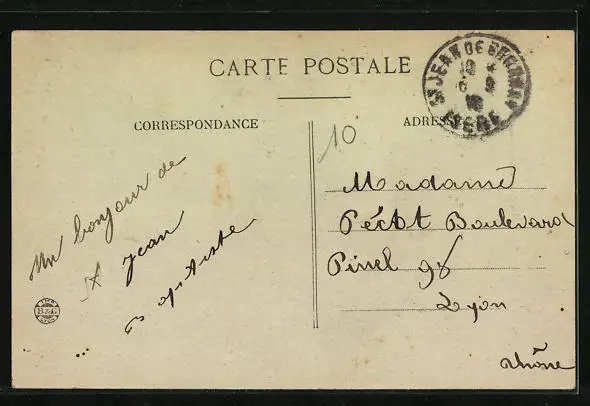 CARTE POSTALE
CORRESPONDANCE
ADRESSE
10
ST JEAN DE BOURNAY
ISERE
Un bonjour de
St Jean
Baptiste
...
B&G
Madame
Péctot Boulevard
Pinel 98
Lyon
Rhône